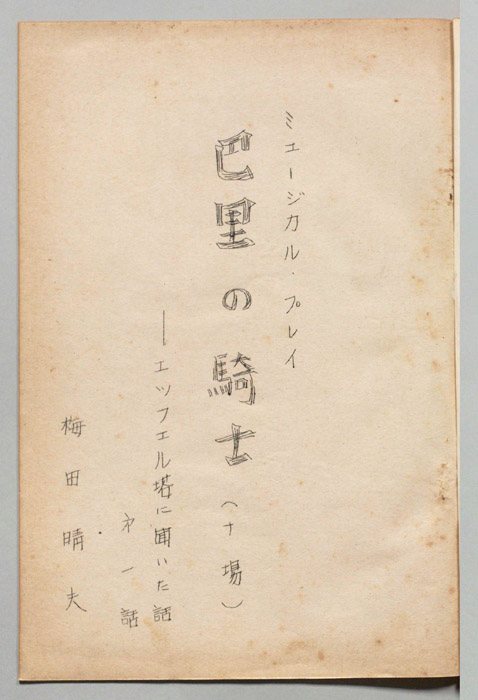 ミュージカル・プレイ
巴里の騎士（十場）
―エッフェル塔に聞いた話
才一話
梅田晴夫